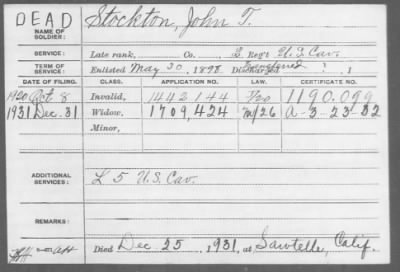 DEAD
NAME OF SOLDIER: Stockton, John T.
SERVICE: Late rank, Co. L Reg't U.S. Cav.
TERM OF SERVICE: Enlisted May 30, 1898 Discharged Transferred ? , 1
DATE OF FILING. CLASS. APPLICATION NO. LAW. CERTIFICATE NO.
1920 Oct 8 Invalid, 1442144 1190.099
1931 Dec. 31 Widow, 1709,424 m/26 A-3-23-32
Minor,
ADDITIONAL SERVICES: L 5 U.S. Cav.
REMARKS:
Died Dec 25, 1931, at Sawtelle, Calif.